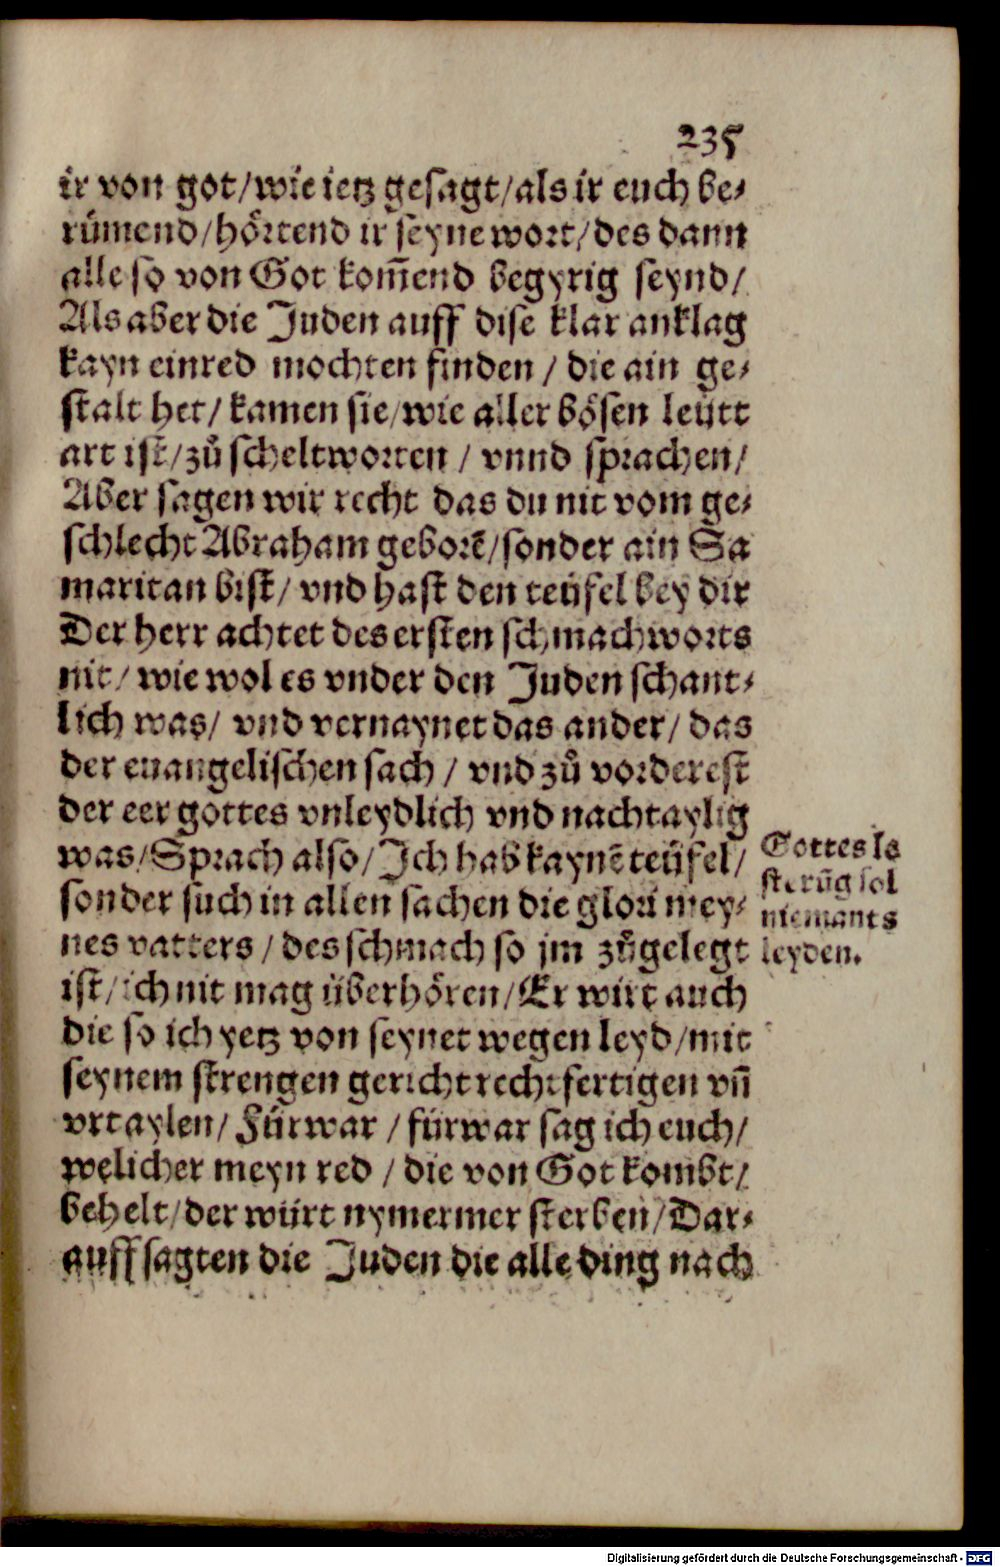 235
ir von got/wie ietz gesagt/als ir euch be⸗
rümend/hoͤrtend ir seyne wort/des dann
alle so von Got kom̃end begyrig seynd/
Als aber die Juden auff dise klar anklag
kayn einred mochten finden / die ain ge⸗
stalt het/ kamen sie/wie aller boͤsen leütt
art ist/zuͦ scheltworten / vnnd sprachen/
Aber sagen wir recht das du nit vom ge⸗
schlecht Abraham geborẽ/sonder ain Sa
maritan bist/ vnd hast den teüfel bey dir
Der herr achtet des ersten schmachworts
nit/ wie wol es vnder den Juden schant⸗
lich was/ vnd vernaynet das ander/ das
der euangelischen sach / vnd zuͦ vorderest
der eer gottes vnleydlich vnd nachtaylig
was/Sprach also/Ich hab kaynẽ teüfel/
sonder such in allen sachen die glori mey⸗
nes vatters / des schmach so jm zuͦgelegt
ist/ich nit mag überhoͤren/Er wirt auch
die so ich yetz von seynet wegen leyd/mit
seynem strengen gericht rechtfertigen vñ
vrtaylen/ Fürwar / fürwar sag ich euch/
welicher meyn red / die von Got kombt/
behelt/der würt nymermer sterben/Dar⸗
auff sagten die Juden die alle ding nach
Gottes le
sterũg sol
niemants
leyden.
Digitalisierung gefördert durch die Deutsche Forschungsgemeinschaft - DFG